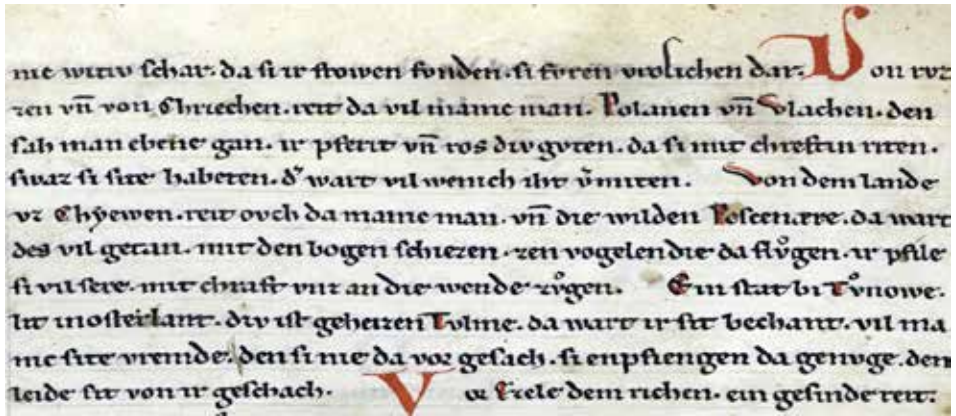 nic witiv schar. da si ir frowen fvnden. si fvren vrolichen dar. Von rvz
zen vn̄ von Chriechen. reit da vil manic man. Polanen vn̄ Vlachen. den
sah man ebene gan. ir pferit vn̄ ros div gvten. da si mit chreften riten.
swaz si site habeten. d͛ wart vil wenich iht v͛miten. Von dem lande
vz Chyewen. reit ovch da manic man. vn̄ die wilden Poscenære. da wart
des vil getan. mit den bogen schiezen. zen vogelen die da flvͦgen. ir pfile
si vil sere. mit chraft vnz an die wende zvͦgen. Ein stat bi Tvͦnowe.
lit in osterlant. div ist geheizen Tvlme. da wart ir sit bechant. vil ma
nic site vremde. den si nie da vor gesach. si enpfiengen da genvge. den
leide sit von ir geschach. Vor Ezele dem richen. ein gesinde reit.